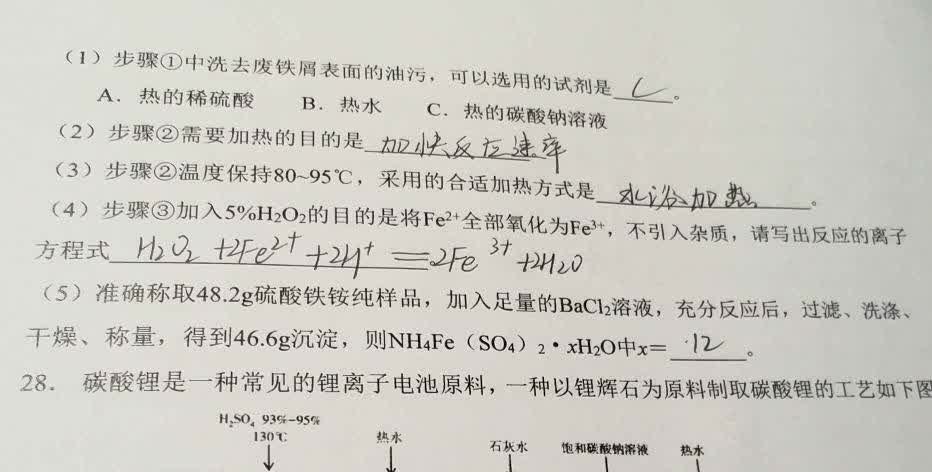 （1）步骤①中洗去废铁屑表面的油污，可以选用的试剂是 C 。
A．热的稀硫酸 B．热水 C．热的碳酸钠溶液
（2）步骤②需要加热的目的是 加快反应速率
（3）步骤②温度保持80~95℃，采用的合适加热方式是 水浴加热 。
（4）步骤③加入5%H₂O₂的目的是将Fe²⁺全部氧化为Fe³⁺，不引入杂质，请写出反应的离子
方程式 H₂O₂ +2Fe²⁺ +2H⁺ ═ 2Fe³⁺ +2H₂O
（5）准确称取48.2g硫酸铁铵纯样品，加入足量的BaCl₂溶液，充分反应后，过滤、洗涤、
干燥、称量，得到46.6g沉淀，则NH₄Fe（SO₄）₂•xH₂O中x= 12 。
28．碳酸锂是一种常见的锂离子电池原料，一种以锂辉石为原料制取碳酸锂的工艺如下图
H₂SO₄ 93%-95%
130℃ 热水 石灰水 饱和碳酸钠溶液 热水